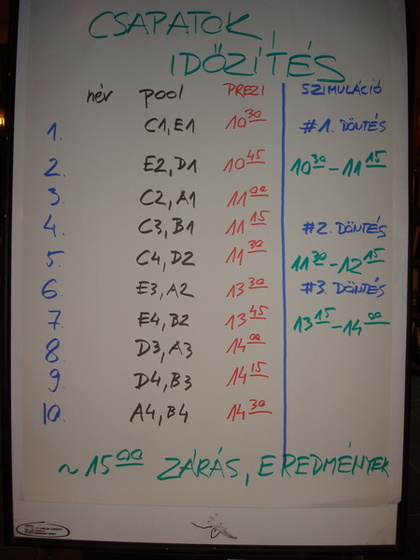 CSAPATOK,
IDŐZÍTÉS
név pool PREZI SZIMULÁCIÓ
1. C1, E1 10 30 #1. DÖNTÉS
2. E2, D1 10 45 10 30 - 11 15
3. C2, A1 11 00
4. C3, B1 11 15 #2. DÖNTÉS
5. C4, D2 11 30 11 30 - 12 15
6. E3, A2 13 30 #3. DÖNTÉS
7. E4, B2 13 45 13 15 - 14 00
8. D3, A3 14 00
9. D4, B3 14 15
10. A4, B4 14 30
~ 15 00 ZÁRÁS, EREDMÉNYEK